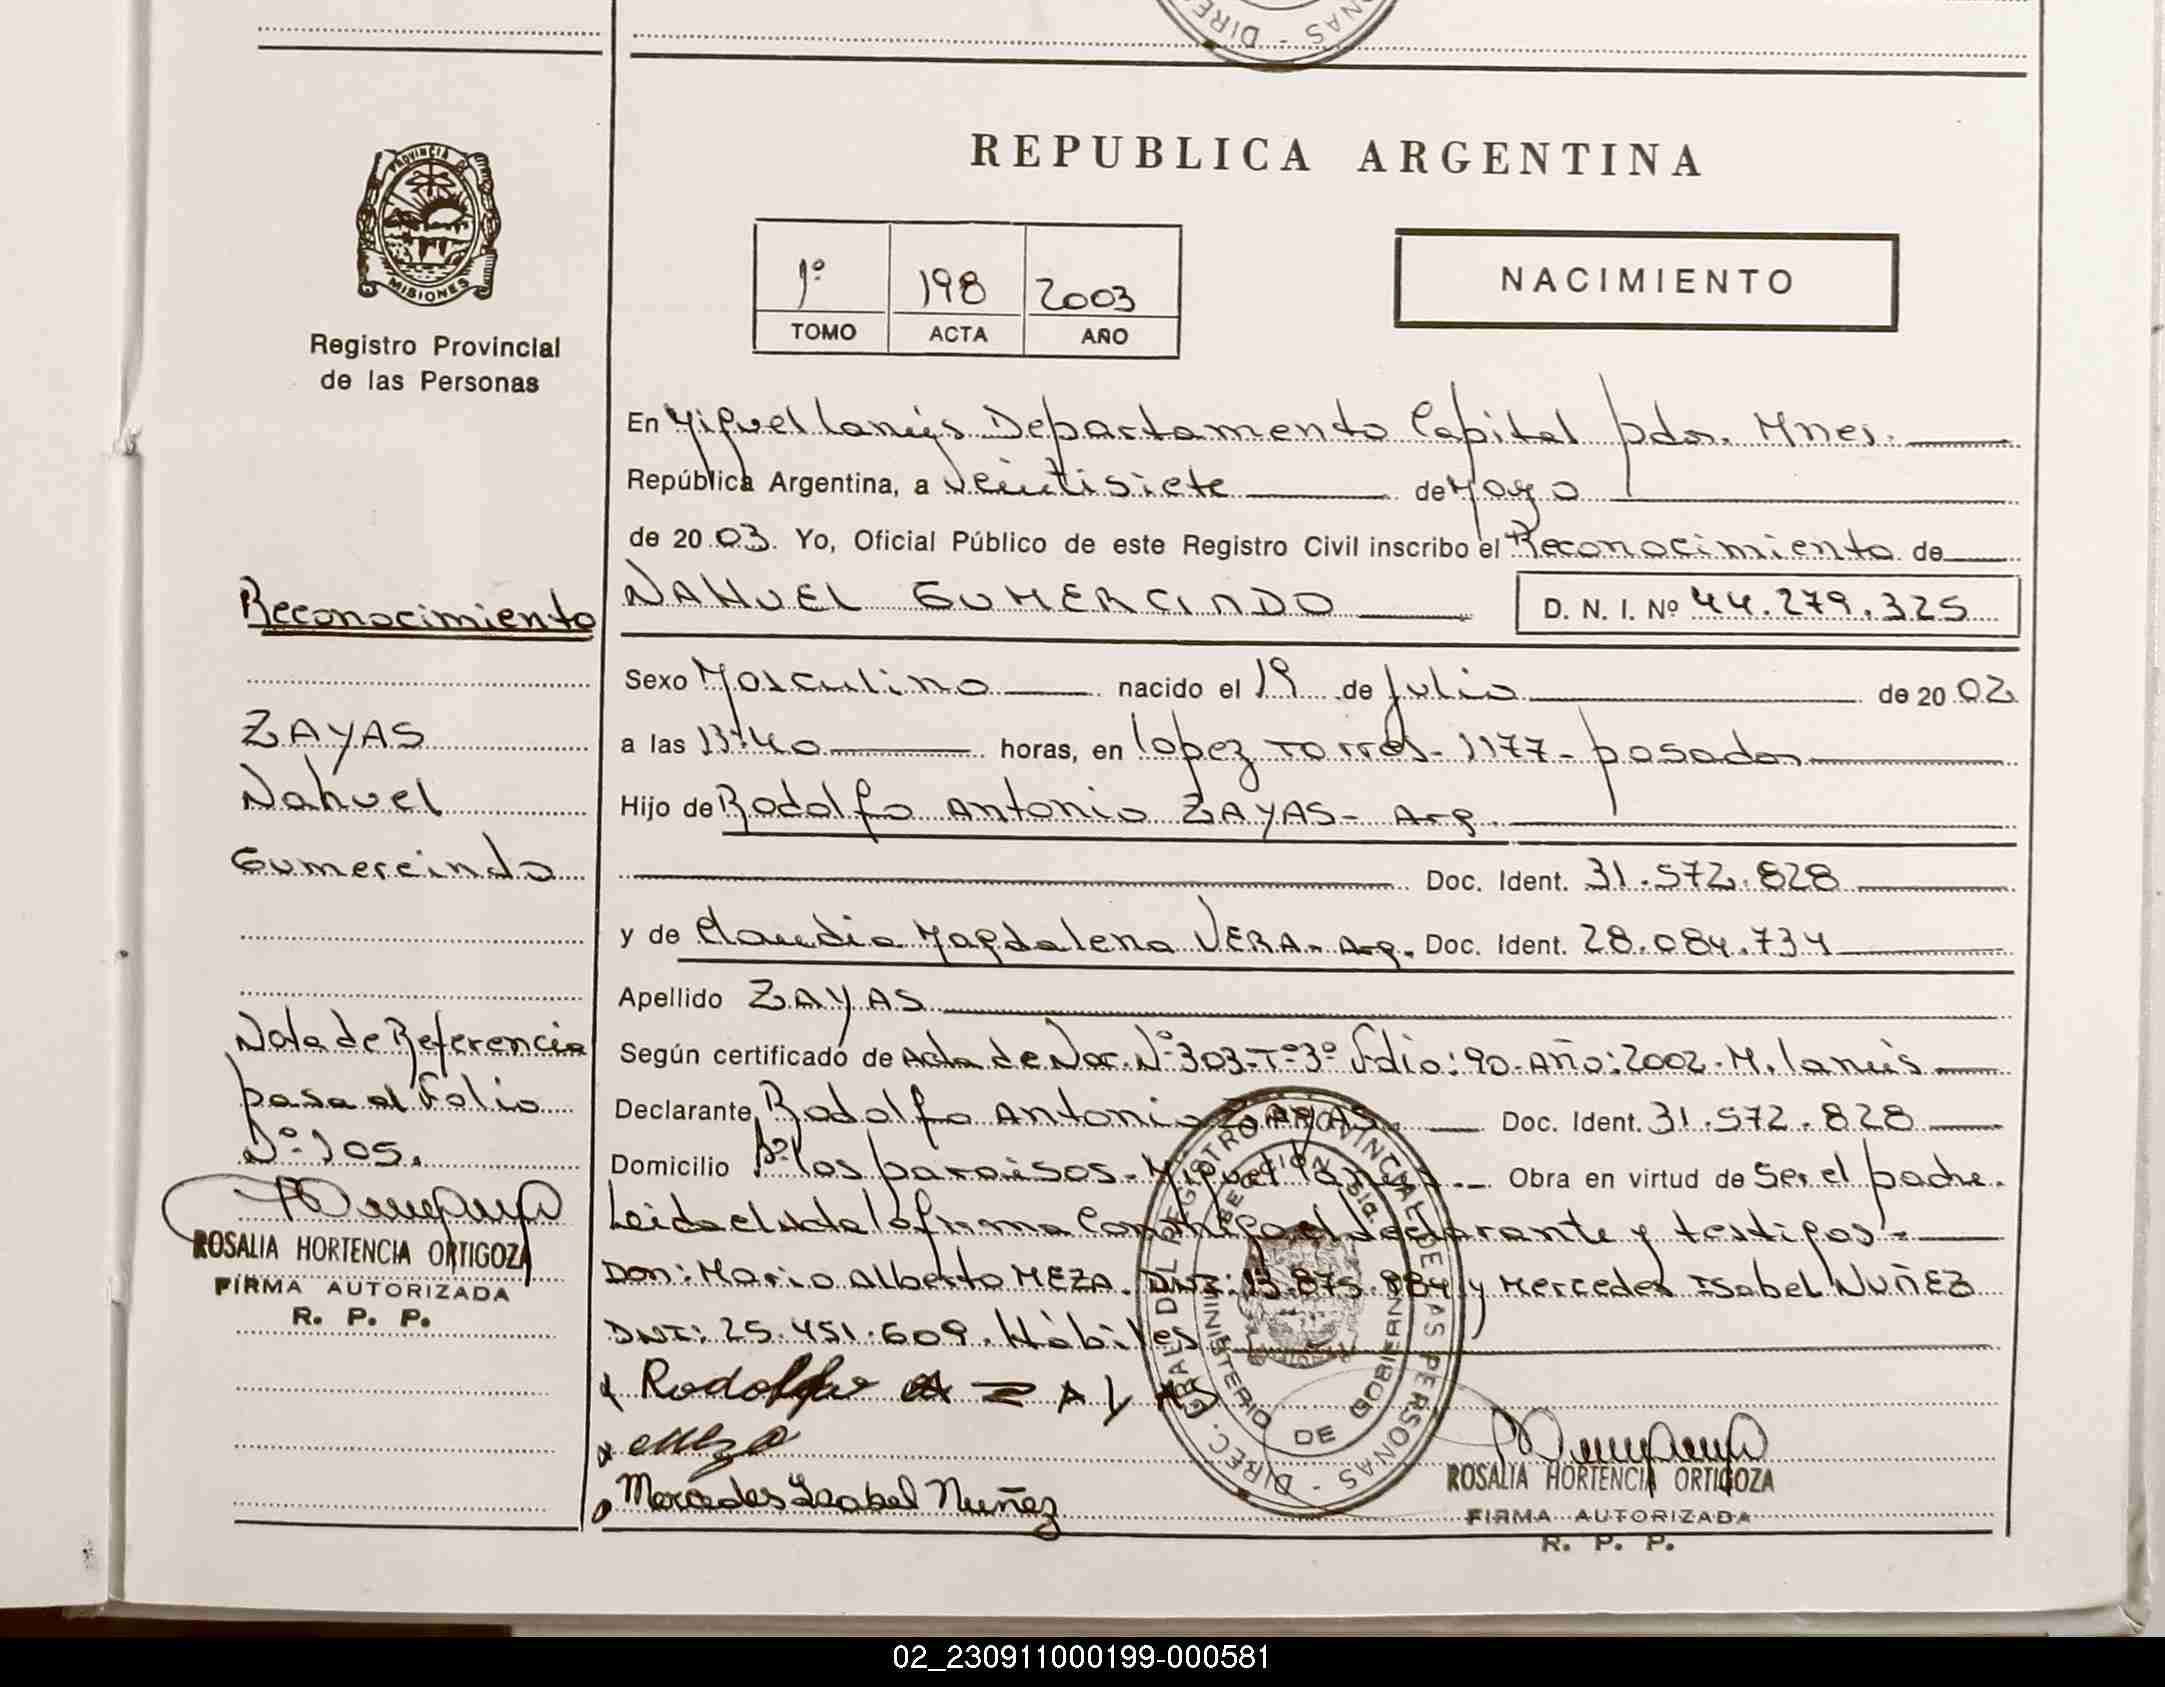 REPUBLICA ARGENTINA
PROVINCIA DE MISIONES
Registro Provincial
de las Personas
1º 198 2003
TOMO ACTA AÑO
NACIMIENTO
En Miguel Lanús Departamento Capital pdas. Mnes.
República Argentina, a veintisiete de Mayo
de 2003. Yo, Oficial Público de este Registro Civil inscribo el Reconocimiento de
NAHUEL GUMERCINDO D. N. I. Nº 44.279.325
Sexo Masculino nacido el 19 de Julio de 2002
a las 13:40 horas, en Lopez Torres - 1177 - posadas
Hijo de Rodolfo Antonio ZAYAS - Arg.
Doc. Ident. 31.572.828
y de Claudia Magdalena VERA - Arg. Doc. Ident. 28.084.734
Apellido ZAYAS
Según certificado de Acta de Nac. Nº 303 - Tº 3º Folio: 90 - Año: 2002 - M. Lanús
Declarante Rodolfo Antonio ZAYAS Doc. Ident. 31.572.828
Domicilio Bº Los paraisos - Miguel Lanús. Obra en virtud de ser el padre.
Leida el Acta la firma Conmigo el declarante y testigos =
Don: Mario Alberto MEZA. DNI: 13.875.984 y Mercedes Isabel NUÑEZ
DNI: 25.451.609. Hábiles
Rodolfo A ZAYAS
Meza
Mercedes Isabel Nuñez
Reconocimiento
ZAYAS
Nahuel
Gumercindo
Nota de Referencia
pasa al Folio
Nº 105.
ROSALIA HORTENCIA ORTIGOZA
FIRMA AUTORIZADA
R. P. P.
DIREC. GRAL DEL REGISTRO PROVINCIAL DE LAS PERSONAS
MINISTERIO DE GOBIERNO
ROSALIA HORTENCIA ORTIGOZA
FIRMA AUTORIZADA
R. P. P.
02_230911000199-000581